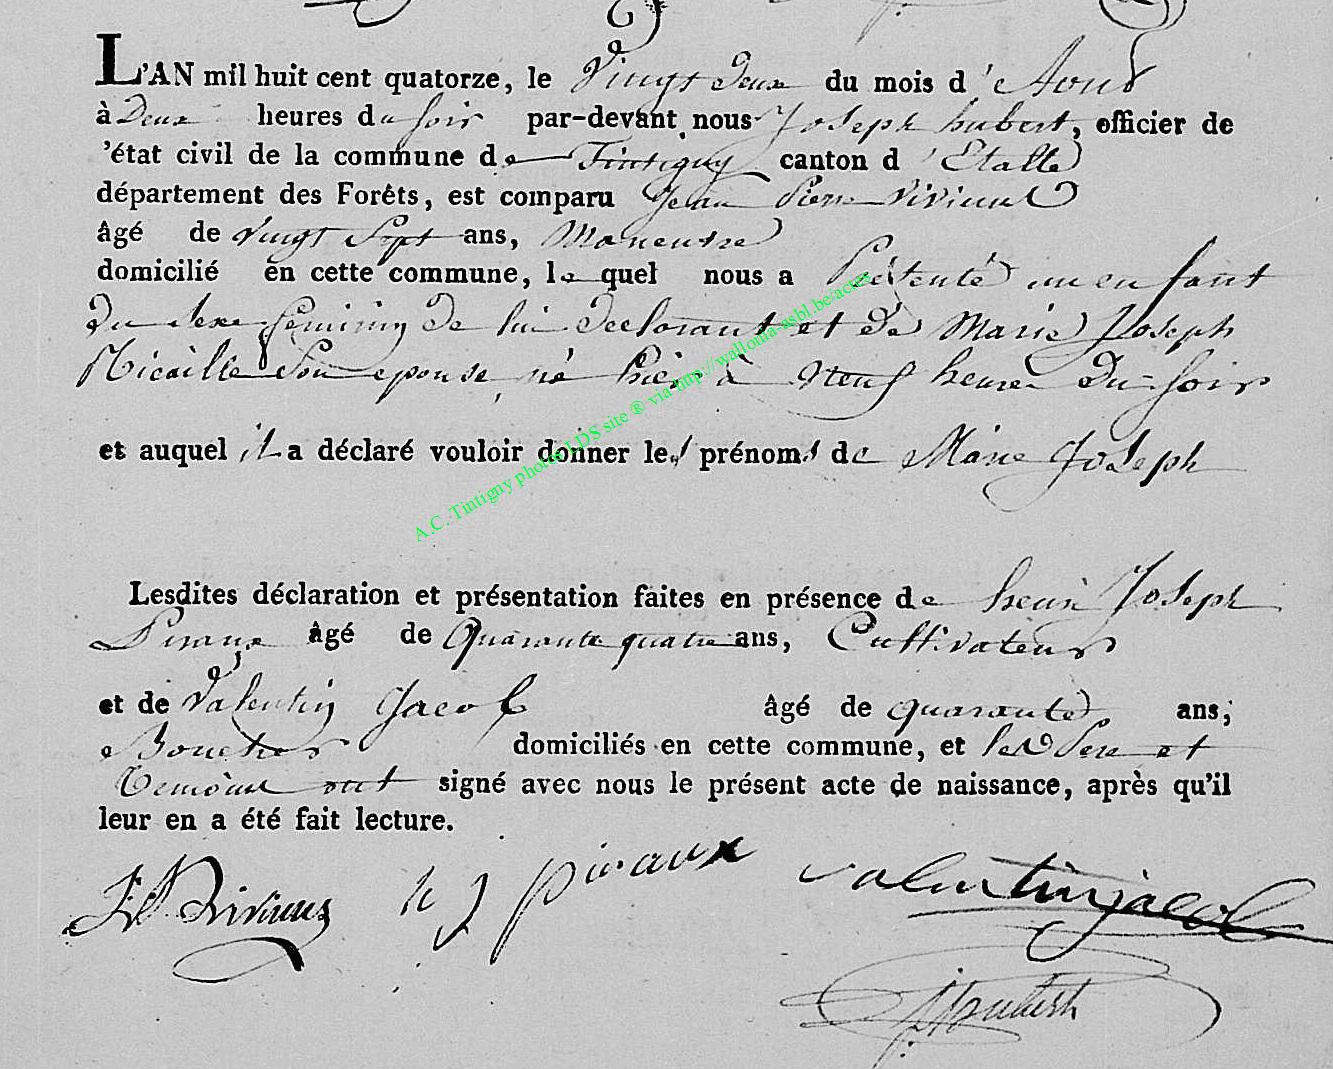 L'AN mil huit cent quatorze, le vingt deux du mois d'Aout
à Deux heures du soir par-devant nous Joseph hubert, officier de
'état civil de la commune de Tintigny canton d'Etalle
département des Forêts, est comparu Jean Pierre
âgé de vingt Sept ans, Maneuvre
domicilié en cette commune, le quel nous a Présenté un enfant
du sexe féminin de lui declarant et de Marie Joseph
Nicaille Son epouse, né hier à Neuf heures du soir
et auquel il a déclaré vouloir donner les prénoms de Marie Joseph
A.C. Tintigny photos LDS site ® via http://wallonia-asbl.be/actes
Lesdites déclaration et présentation faites en présence de henri Joseph
Piraux âgé de Quarante quatre ans, Cultivateur
et de Valentin Jacob âgé de quarante ans,
Boucher domiciliés en cette commune, et les Pere et
temoins ont signé avec nous le présent acte de naissance, après qu'il
leur en a été fait lecture.
h j piraux valentin jacob
J hubert